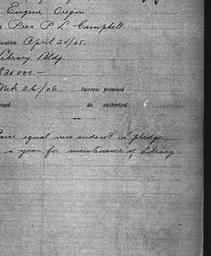 Eugene Oregon
Pres P. L. Campbell
April 24/05.
Library Bldg.
$30000.—
Mch 26/06. Increase promised
do. authorized
equal new endow't in pledge
a year for maintenance of Library